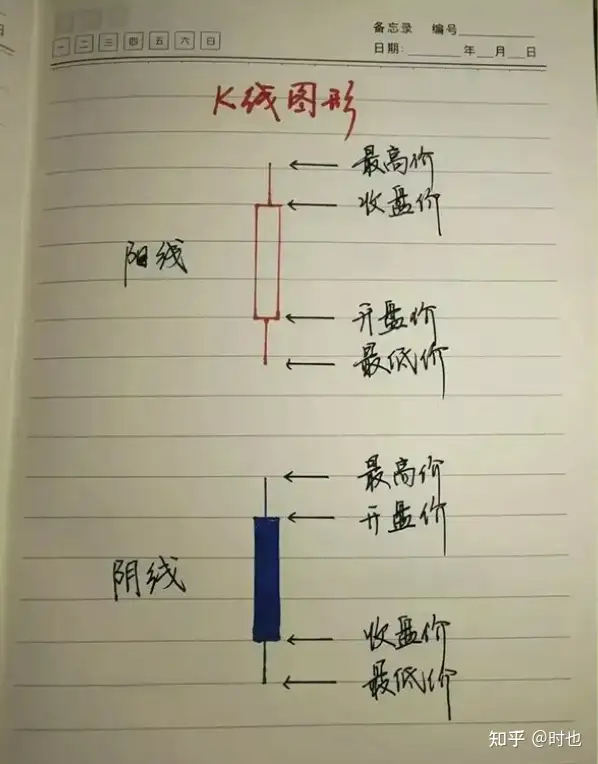 备忘录 编号
一 二 三 四 五 六 日
日期: 年 月 日
K线图形
最高价
收盘价
阳线
开盘价
最低价
最高价
开盘价
阴线
收盘价
最低价
知乎 @时也